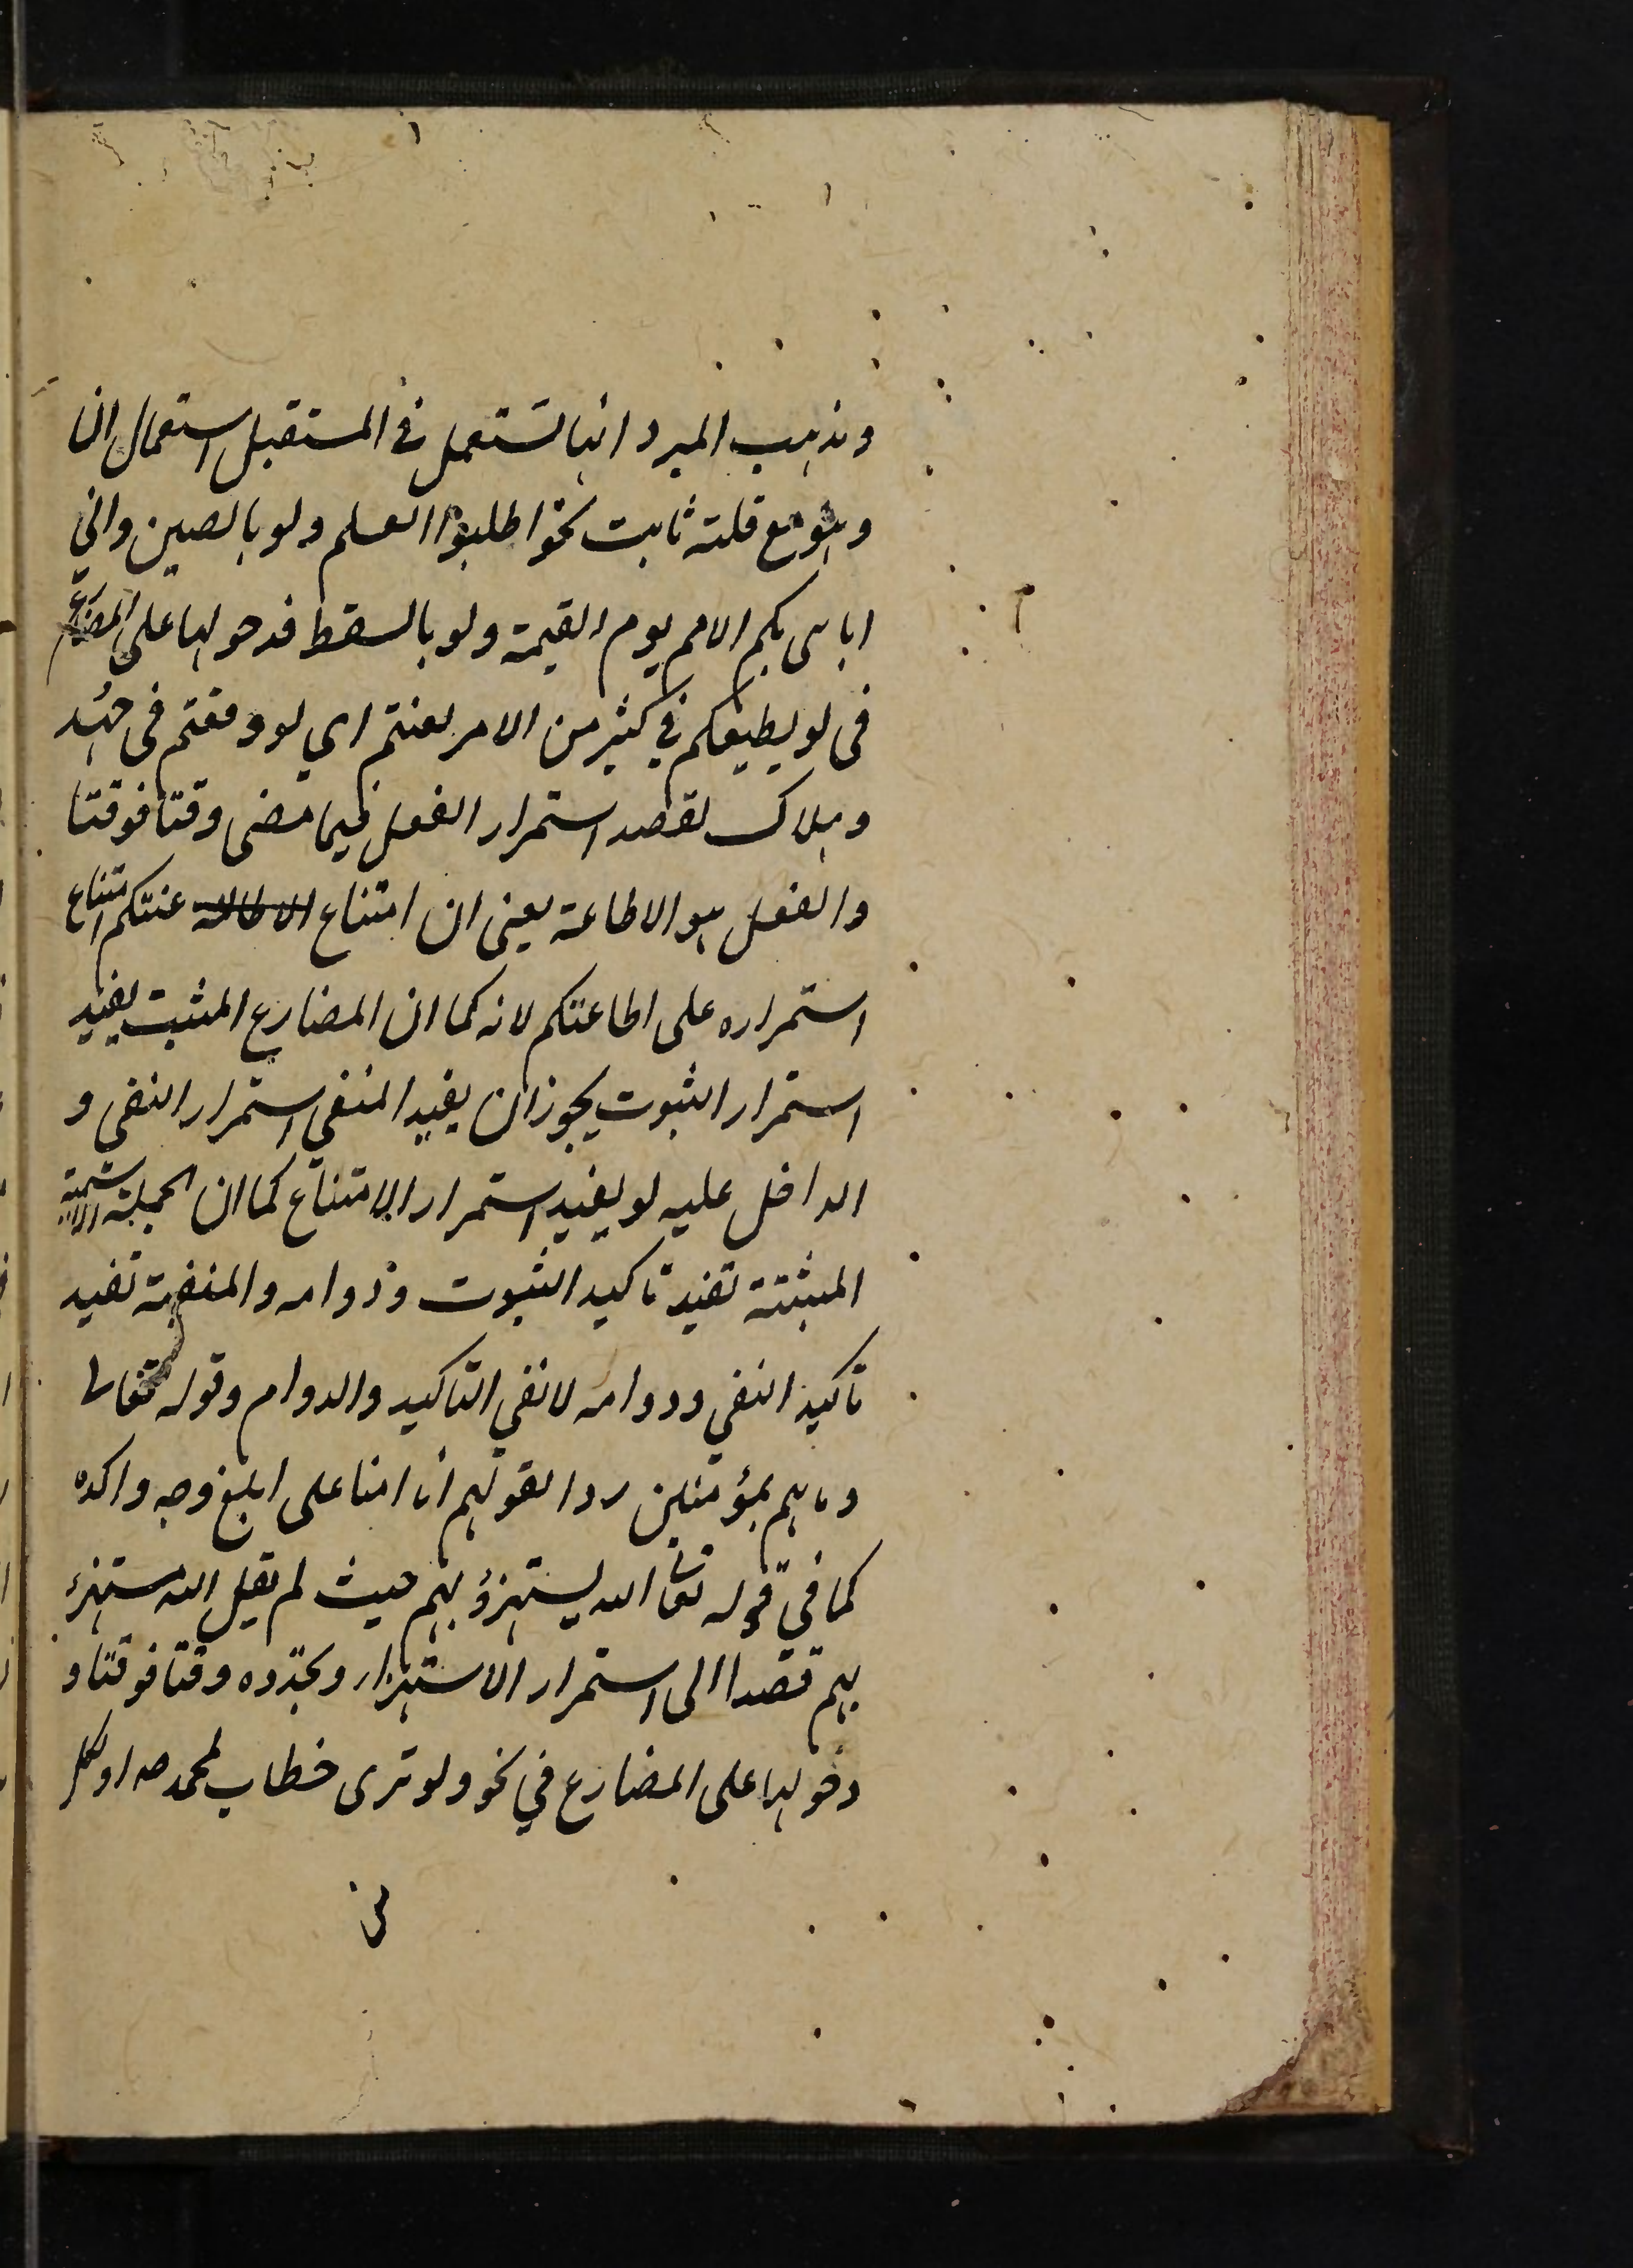 ومذهب المبرد انها تستعمل في المستقبل استعمال ان
وهو مع قلته ثابت نحو اطلبوا العلم ولو بالصين واني
اباهى بكم الامم يوم القيمة ولو بالسقط فدخولها على المضارع
فى لو يطيعكم في كثير من الامر لعنتم اي لو وقعتم فى جهد
وهلاك لقصد استمرار الفعل فيما مضى وقتا فوقتا
والفعل هو الاطاعة يعنى ان امتناع عنتكم امتناع
استمراره على اطاعتكم لانه كما ان المضارع المثبت يفيد
استمرار الثبوت يجوز ان يفيد المنفي استمرار النفى و
الداخل عليه لو يفيد استمرار الامتناع كما ان الجملة الاسمية
المثبتة تفيد تاكيد الثبوت ودوامه والمنفية تفيد
تاكيد النفي ودوامه لا نفي التاكيد والدوام وقوله تعالى
وما هم بمؤمنين ردا لقولهم انا امنا على ابلغ وجه واكده
كما في قوله تعالى الله يستهزؤ بهم حيث لم يقل الله مستهزئ
بهم قصدا الى استمرار الاستهزاء وتجدده وقتا فوقتا و
دخولها على المضارع في نحو ولو ترى خطاب لمحمد صه او لكل
من